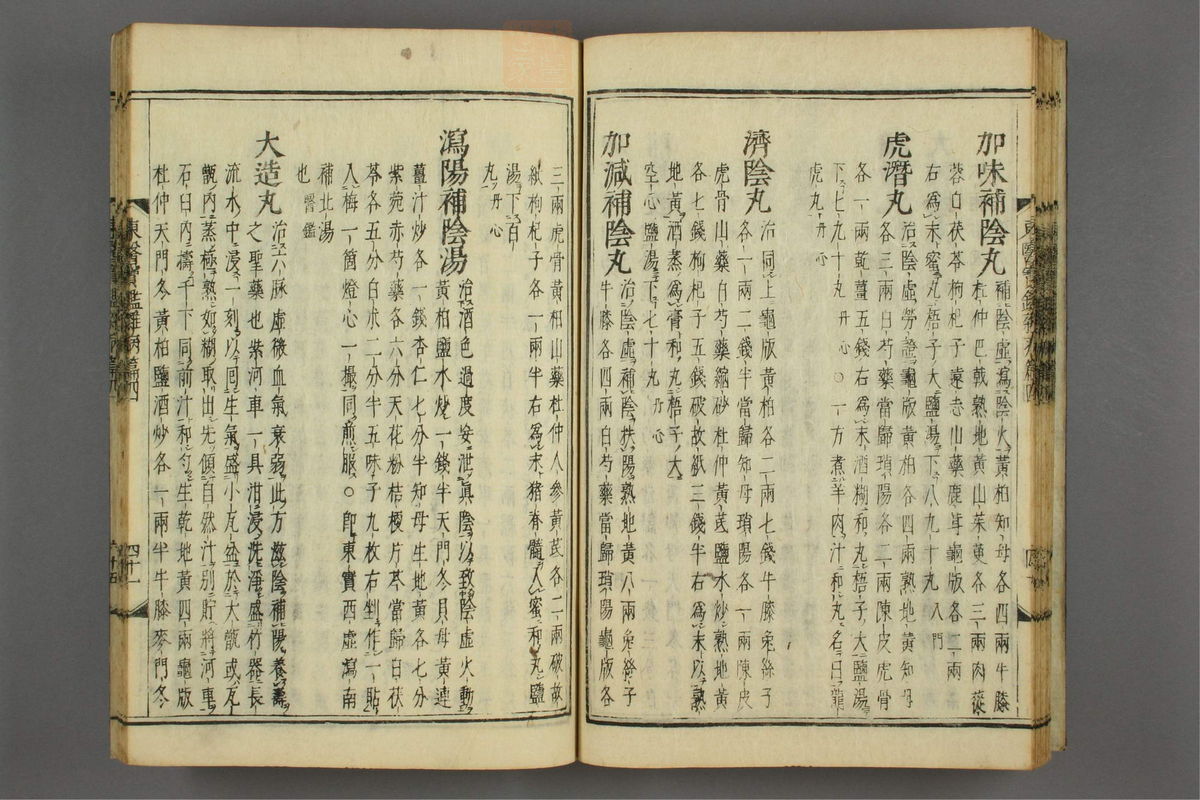 加味補陰丸
補陰虛瀉陰火黃柏知母各四兩牛膝
杜仲巴戟熟地黃山茱萸各三兩肉蓯
蓉白茯苓枸杞子遠志山藥鹿茸龜版各二兩
右爲末蜜丸梧子大鹽湯下八九十丸入門
虎潛丸
治陰虛勞證龜版黃柏各四兩熟地黃知母
各三兩白芍藥當歸瑣陽各二兩陳皮虎骨
各一兩乾薑五錢右爲末酒糊和丸梧子大鹽湯
下七九十丸丹心○一方煮羊肉汁和丸名曰龍
虎丸丹心
濟陰丸
治同上龜版黃柏各二兩七錢牛膝兔絲子
各一兩二錢半當歸知母瑣陽各一兩陳皮
虎骨山藥白芍藥縮砂杜仲黃芪鹽水炒熟地黃
各七錢枸杞子五錢破故紙三錢半右爲末以熟
地黃酒蒸爲膏和丸梧子大
空心鹽湯下七十丸丹心
加減補陰丸
治陰虛補陰扶陽熟地黃八兩兔絲子
牛膝各四兩白芍藥當歸瑣陽龜版各
三兩虎骨黃柏山藥杜仲人參黃芪各二兩破故
紙枸杞子各一兩半右爲末猪脊髓入蜜和丸鹽
湯下百
丸丹心
瀉陽補陰湯
治酒色過度妄泄眞陰以致陰虛火動
黃柏鹽水炒一錢半天門冬貝母黃連
薑汁炒各一錢杏仁七分半知母生地黃各七分
紫菀赤芍藥各六分天花粉桔梗片芩當歸白茯
苓各五分白朮二分半五味子九枚右剉作一貼
入梅一箇燈心一撮同煎服○卽東實西虛瀉南
補北湯
也醫鑑
大造丸
治六脉虛微血氣衰弱此方滋陰補陽養壽
之聖藥也紫河車一具泔浸洗淨盛竹器長
流水中浸一刻以回生氣盛小瓦盆於大甑或瓦
甑內蒸極熟如糊取出先傾自然汁別貯將河車
石臼內擣千下同前汁和勻生乾地黃四兩龜版
杜仲天門冬黃柏鹽酒炒各一兩半牛膝麥門冬
東醫寶鑑雜病篇四
四十一